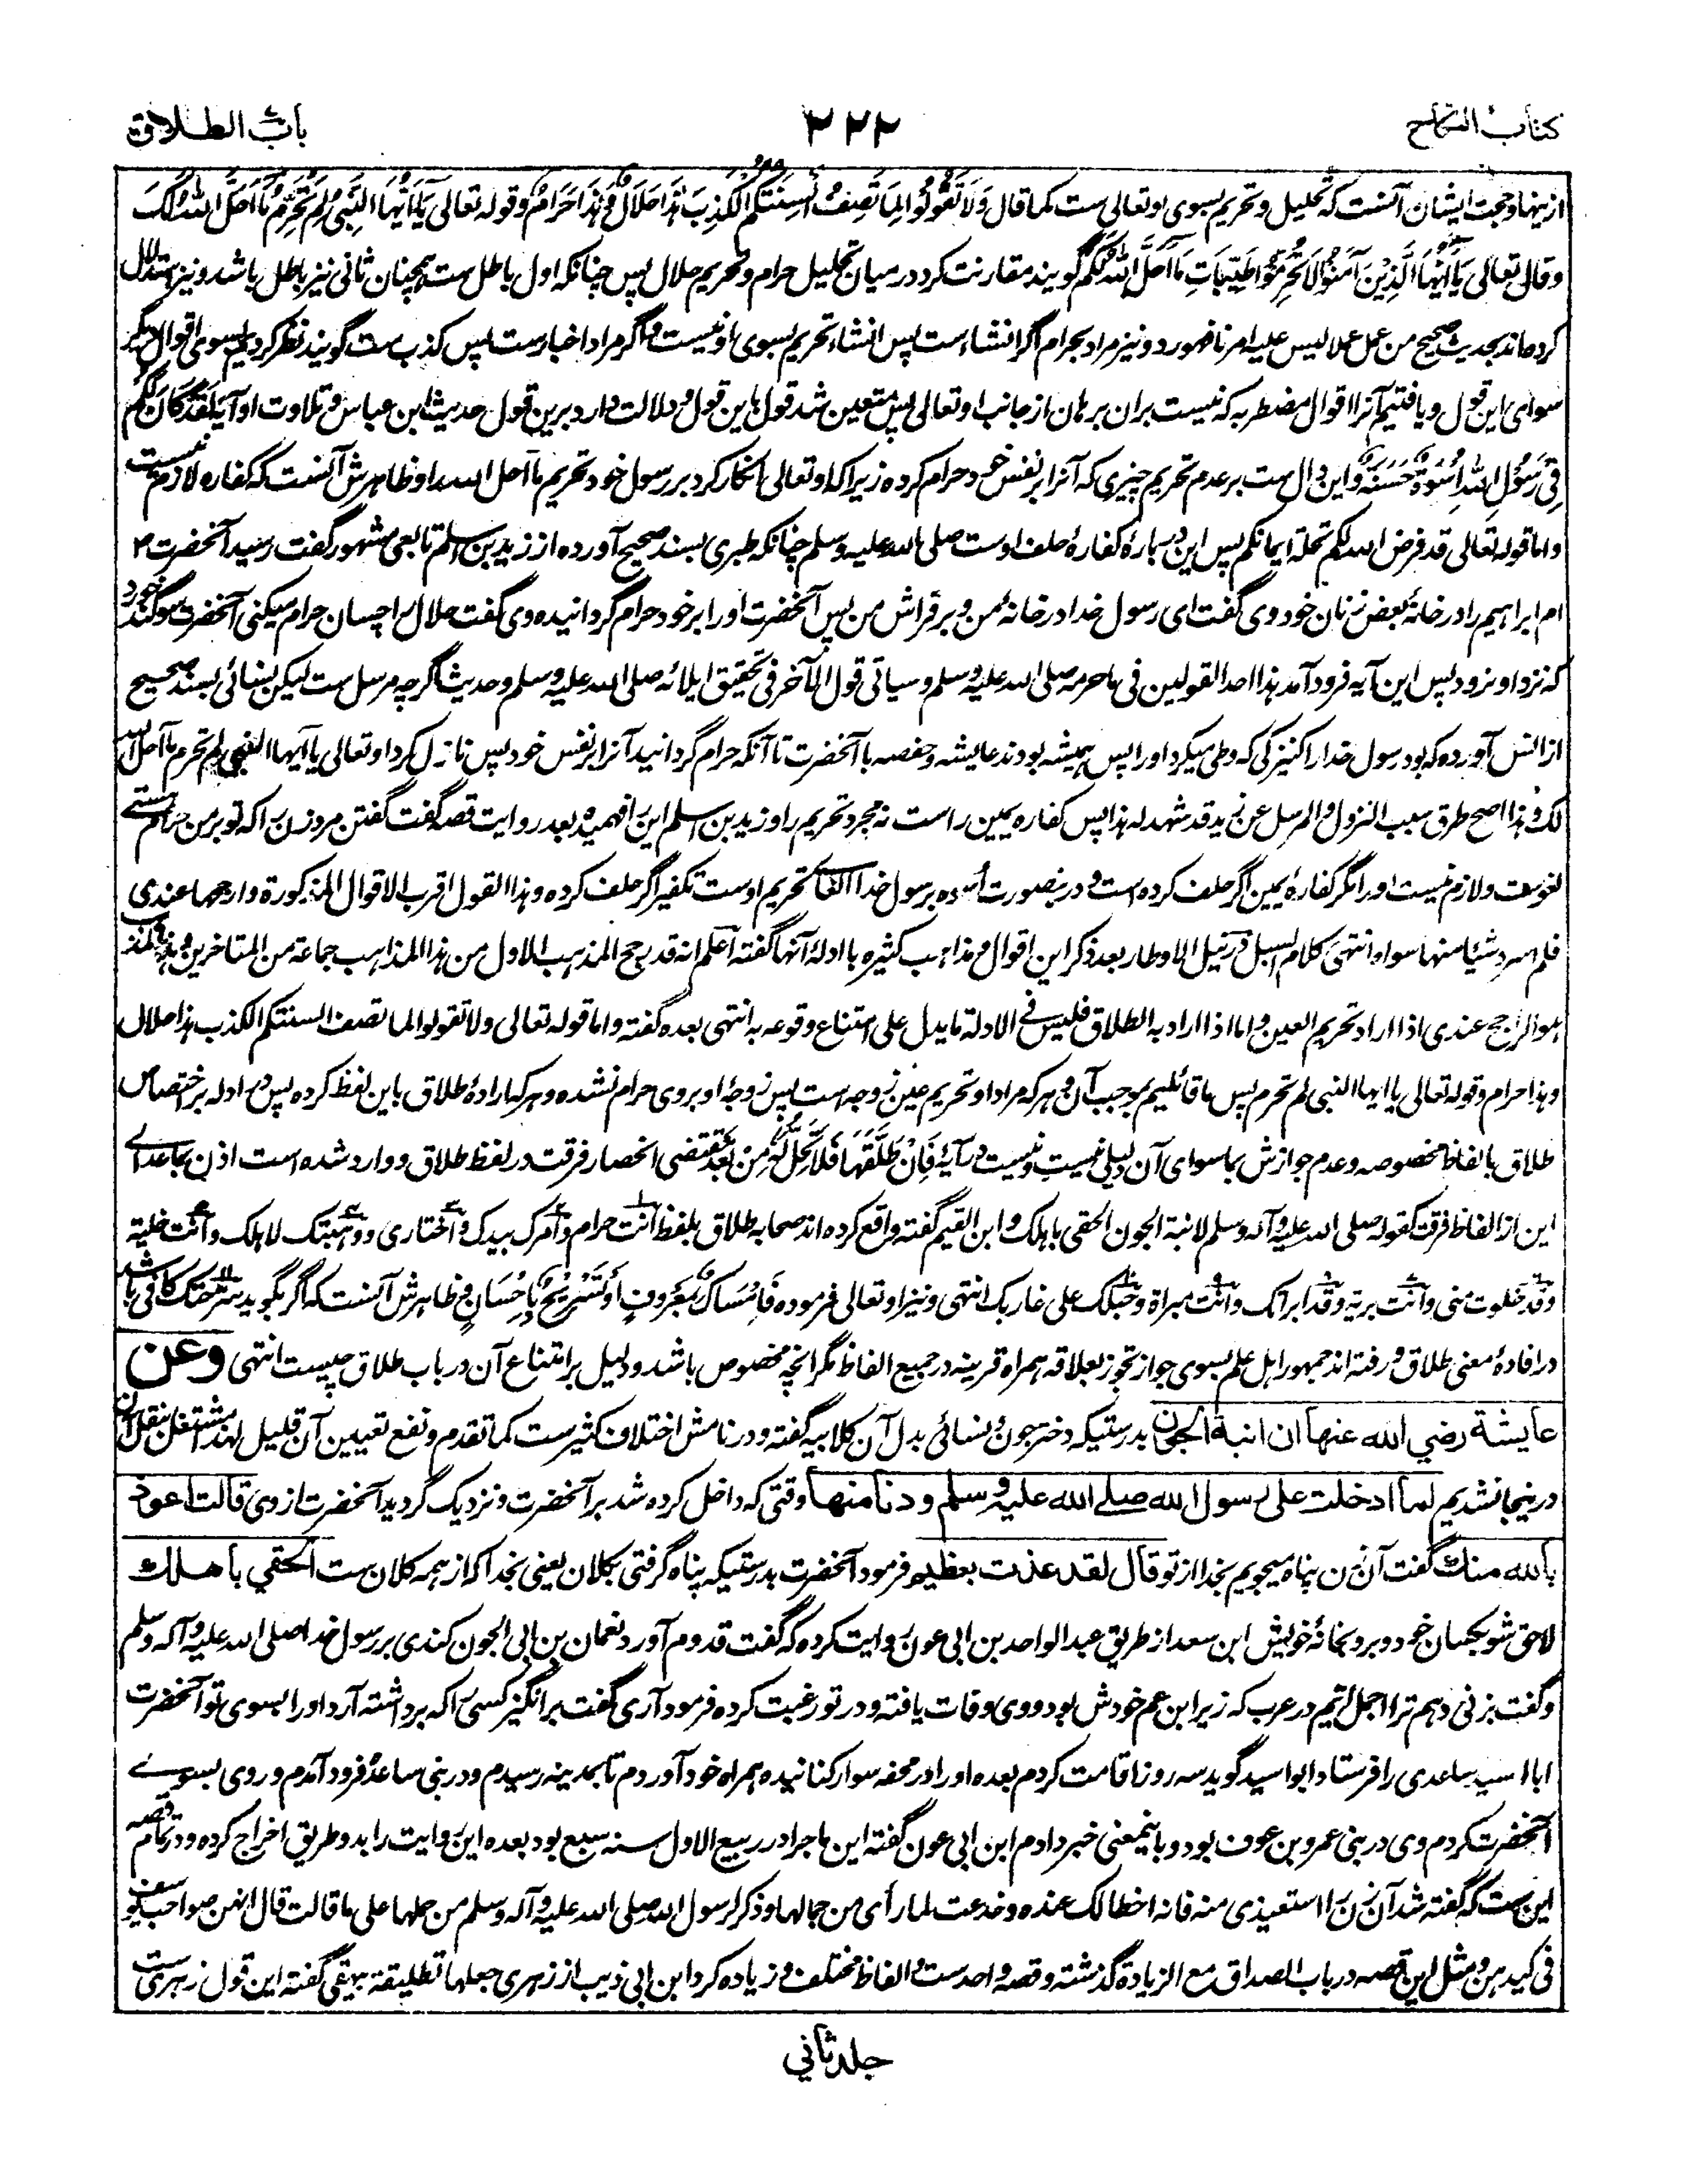 کتاب النکاح
۲۲۲
باب الطلاق
ازینها و حجت ایشان آنست که تحلیل و تحریم بسوی او تعالی ست کما قال وَلَا تَقُولُوا لِمَا تَصِفُ أَلْسِنَتُكُمُ الْكَذِبَ هٰذَا حَلَالٌ وَهٰذَا حَرَامٌ و قوله تعالی يَا أَيُّهَا النَّبِيُّ لِمَ تُحَرِّمُ مَا أَحَلَّ اللهُ لَكَ
وقال تعالی يَا أَيُّهَا الَّذِينَ آمَنُوا لَا تُحَرِّمُوا طَيِّبَاتِ مَا أَحَلَّ اللهُ لَكُمْ گویند مقارنت کرد درمیان تحلیل حرام و تحریم حلال پس چنانکه اول باطل ست همچنان ثانی نیز باطل باشد و نیز استدلال
کرده‌اند بحدیث صحیح من عمل عملا لیس علیه امرنا فهو رد و نیز مراد بحرام اگر انشاء ست پس انشاء تحریم بسوی او نیست و اگر مراد اخبار ست پس کذب ست گویند نظر کردیم بسوی اقوال دیگر
سوای این قول و یافتیم آنرا اقوال مضطربه که نیست بران برهان از جانب او تعالی پس متعین شد قول باین قول و دلالت دارد برین قول حدیث ابن عباس و تلاوت او آیهٔ لَقَدْ كَانَ لَكُمْ
فِي رَسُولِ اللهِ أُسْوَةٌ حَسَنَةٌ و این دال ست بر عدم تحریم چیزی که آنرا بر نفس خود حرام کرده زیرا که او تعالی انکار کرد بر رسول خود تحریم ما احل الله را و ظاهرش آنست که کفاره لازم نیست
و اما قوله تعالی قد فرض الله لکم تحلة ایمانکم پس این دربارهٔ کفارهٔ حلف اوست صلی الله علیه وسلم چنانکه طبری بسند صحیح آورده از زید بن اسلم تابعی مشهور گفت رسید آنحضرت م
ام ابراهیم را در خانهٔ بعض زنان خود وی گفت ای رسول خدا در خانهٔ من و بر فراش من پس آنحضرت او را بر خود حرام گردانیده وی گفت حلال را چسان حرام میکنی آنحضرت سوگند خورد
که نزد او نرود پس این آیه فرود آمد هذا احد القولین فی ما حرمه صلی الله علیه وسلم وسیاتی قول الآخر فی تحقیق ایلائه صلی الله علیه وسلم و حدیث اگرچه مرسل ست لیکن نسائی بسند صحیح
از انس آورده که بود رسول خدا را کنیزکی که وطی میکرد او را پس همیشه بودند عایشه و حفصه با آنحضرت تا آنکه حرام گردانید آنرا بر نفس خود پس نازل کرد او تعالی یا ایها النبی لم تحرم ما احل الله
لک وهذا اصح طرق سبب النزول والمرسل عن زید قد شهد له هذا پس کفاره یمین راست نه مجرد تحریم را و زید بن اسلم این را فهمیده بعد روایت قصه گفت گفتن مرد زن را که تو بر من حرام هستی
لغوست و لازم نیست او را مگر کفارهٔ یمین اگر حلف کرده است و درینصورت اسوه برسول خدا الغای تحریم اوست و تکفیر اگر حلف کرده وهذا القول اقرب الاقوال المذکورة وارجحها عندی
فلم اسرد شیئا منها سواه انتهی کلام السبل و در نیل الاوطار بعد ذکر این اقوال و مذاهب کثیره با ادلهٔ آنها گفته اعلم انه قد رجح المذهب الاول من هذا المذاهب جماعة من المتاخرین وهذا المذهب
هو الراجح عندی اذا اراد تحریم العین واما اذا اراد به الطلاق فلیس فی الادلة ما یدل علی امتناع وقوعه به انتهی بعده گفته و اما قوله تعالی ولا تقولوا لما تصف السنتکم الکذب هذا حلال
وهذا حرام و قوله تعالی یا ایها النبی لم تحرم پس ما قائلیم بموجب آن و هر که مراد او تحریم عین زوجه است پس زوجهٔ او بروی حرام نشده و هر که ارادهٔ طلاق باین لفظ کرده پس در ادله بر اختصاص
طلاق بالفاظ مخصوصه و عدم جوازش بماسوای آن دلیلی نیست و نیست در آیهٔ فَإِنْ طَلَّقَهَا فَلَا تَحِلُّ لَهُ مِنْ بَعْدُ مقتضی انحصار فرقت در لفظ طلاق و وارد شده است اذن بماعدای
این از الفاظ فرقت کقوله صلی الله علیه وآله وسلم لابنة الجون الحقی باهلک و ابن القیم گفته واقع کرده‌اند صحابه طلاق بلفظ انت حرام وامرک بیدک واختاری ووهبتک لاهلک وانت خلیة
وقد خلوت منی وانت بریة وقد ابراتک وانت مبراة وحبلک علی غاربک انتهی و نیز او تعالی فرموده فَإِمْسَاكٌ بِمَعْرُوفٍ أَوْ تَسْرِيحٌ بِإِحْسَانٍ و ظاهرش آنست که اگر بگوید سرحتک کافی باشد
در افادهٔ معنی طلاق و رفته‌اند جمهور اهل علم بسوی جواز تجوز بعلاقه همراه قرینه در جمیع الفاظ مگر انچه مخصوص باشد و دلیل بر امتناع آن در باب طلاق چیست انتهی وعن
عایشة رضي الله عنها ان ابنة الجون بدرستیکه دختر جون نسائی بدل آن کلابیه گفته و در نامش اختلاف کثیر ست کما تقدم و نفع تعیین آن قلیل لهذا مشتغل بنقل آن
درینجا نشدیم لما ادخلت علی رسول الله صلے الله علیه وسلم ودنا منها وقتی که داخل کرده شد بر آنحضرت و نزدیک گردید آنحضرت از وی قالت اعوذ
بالله منك گفت آن زن پناه میجویم بخدا از تو قال لقد عذت بعظیم فرمود آنحضرت بدرستیکه پناه گرفتی بکلان یعنی بخدا که از همه کلان ست الحقي باهلك
لاحق شو بکسان خود و برو بخانهٔ خویش ابن سعد از طریق عبدالواحد بن ابی عون روایت کرده که گفت قدوم آورد نعمان بن ابی الجون کندی بر رسول خدا صلی الله علیه وآله وسلم
و گفت بزنی دهم ترا اجمل ایم در عرب که زیر ابن عم خودش بود و وی وفات یافته و در تو رغبت کرده فرمود آری گفت برانگیز کسی را که برداشته آرد او را بسوی تو آنحضرت
ابا اسید ساعدی را فرستاد ابواسید گوید سه روز اقامت کردم بعده او را در محفه سوار کنانیده همراه خود آوردم تا بمدینه رسیدم و در بنی ساعده فرود آمدم و روی بسوے
آنحضرت کردم وی در بنی عمرو بن عوف بود و باینمعنی خبر دادم ابن ابی عون گفته این ماجرا در ربیع الاول سنه سبع بود بعده این روایت را بدو طریق اخراج کرده و در تمام قصه
این ست که گفته شد آن زن را استعیذی منه فانه احظا لک عنده وخدعت لما رأی من جمالها وذکر لرسول الله صلی الله علیه وآله وسلم من حملها علی ما قالت قال انهن صواحب یوسف
فی کیدهن و مثل این قصه در باب الصداق مع الزیادة گذشته و قصه واحد ست و الفاظ مختلف و زیاده کرد ابن ابی ذیب از زهری جعلها تطلیقة بیهقی گفته این قول زهری ست
جلد ثاني